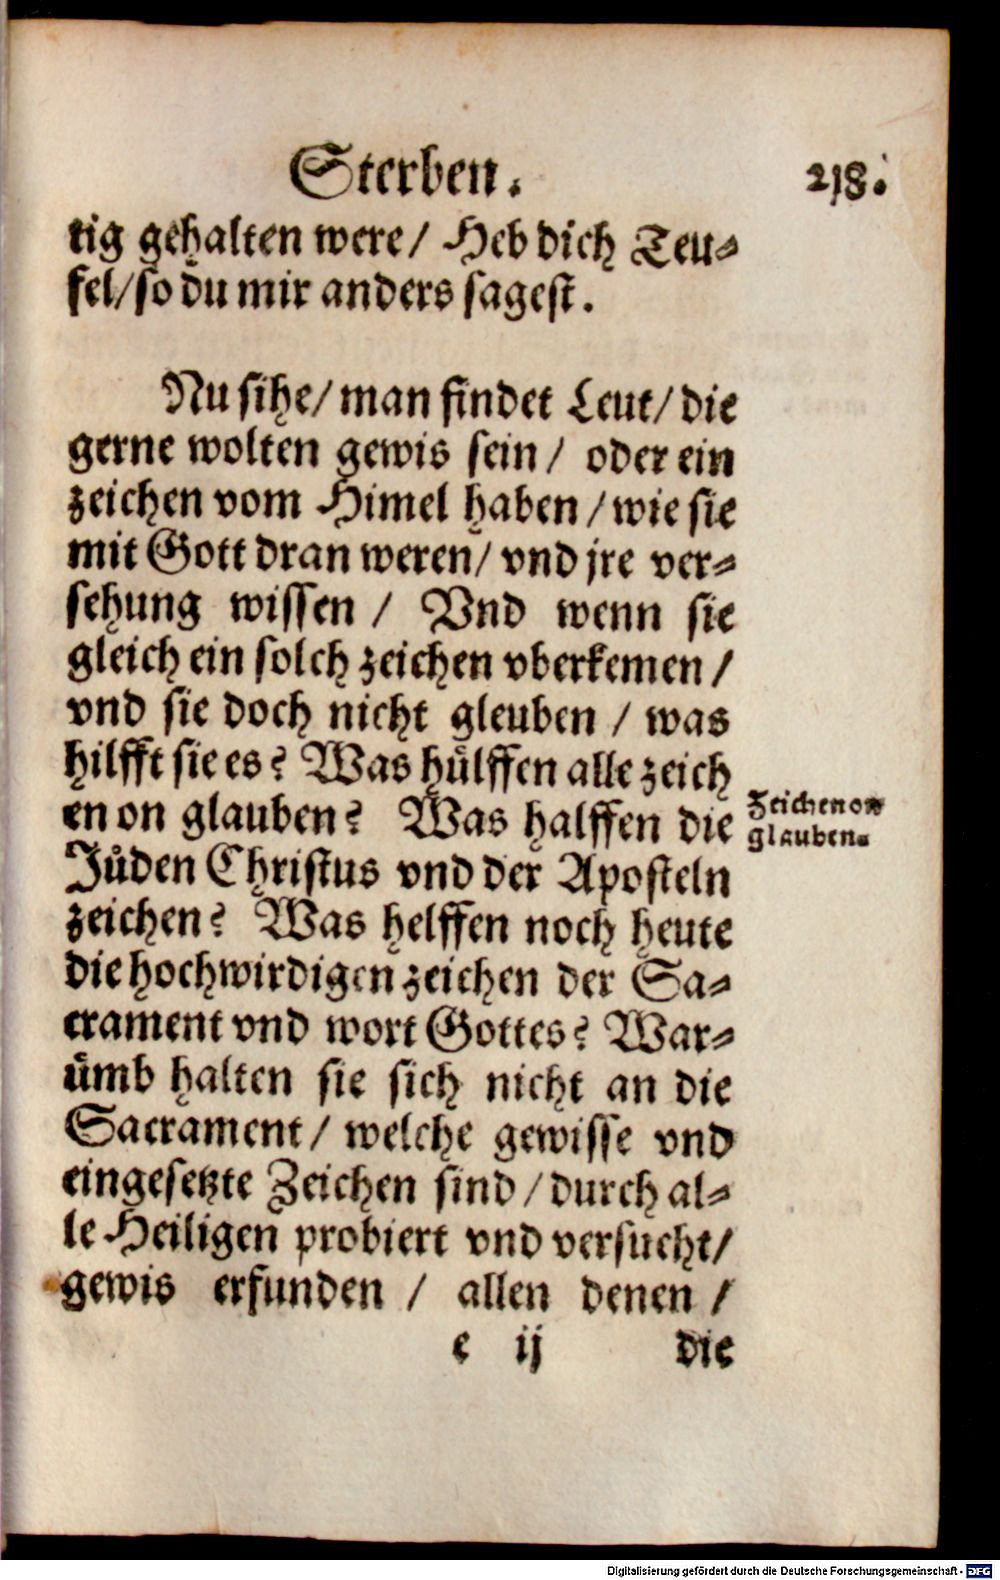 Sterben.
218.
tig gehalten were/ Heb dich Teu-
fel/ so du mir anders sagest.
Nu sihe/ man findet Leut/ die
gerne wolten gewis sein / oder ein
zeichen vom Himel haben / wie sie
mit Gott dran weren/ vnd jre ver-
sehung wissen / Vnd wenn sie
gleich ein solch zeichen vberkemen /
vnd sie doch nicht gleuben / was
hilfft sie es? Was hülffen alle zeich
en on glauben? Was halffen die
Zeichen on
glauben.
Jüden Christus vnd der Aposteln
zeichen? Was helffen noch heute
die hochwirdigen zeichen der Sa-
crament vnd wort Gottes? War-
ümb halten sie sich nicht an die
Sacrament/ welche gewisse vnd
eingesetzte Zeichen sind / durch al-
le Heiligen probiert vnd versucht/
gewis erfunden / allen denen /
e ij
die
Digitalisierung gefördert durch die Deutsche Forschungsgemeinschaft - DFG